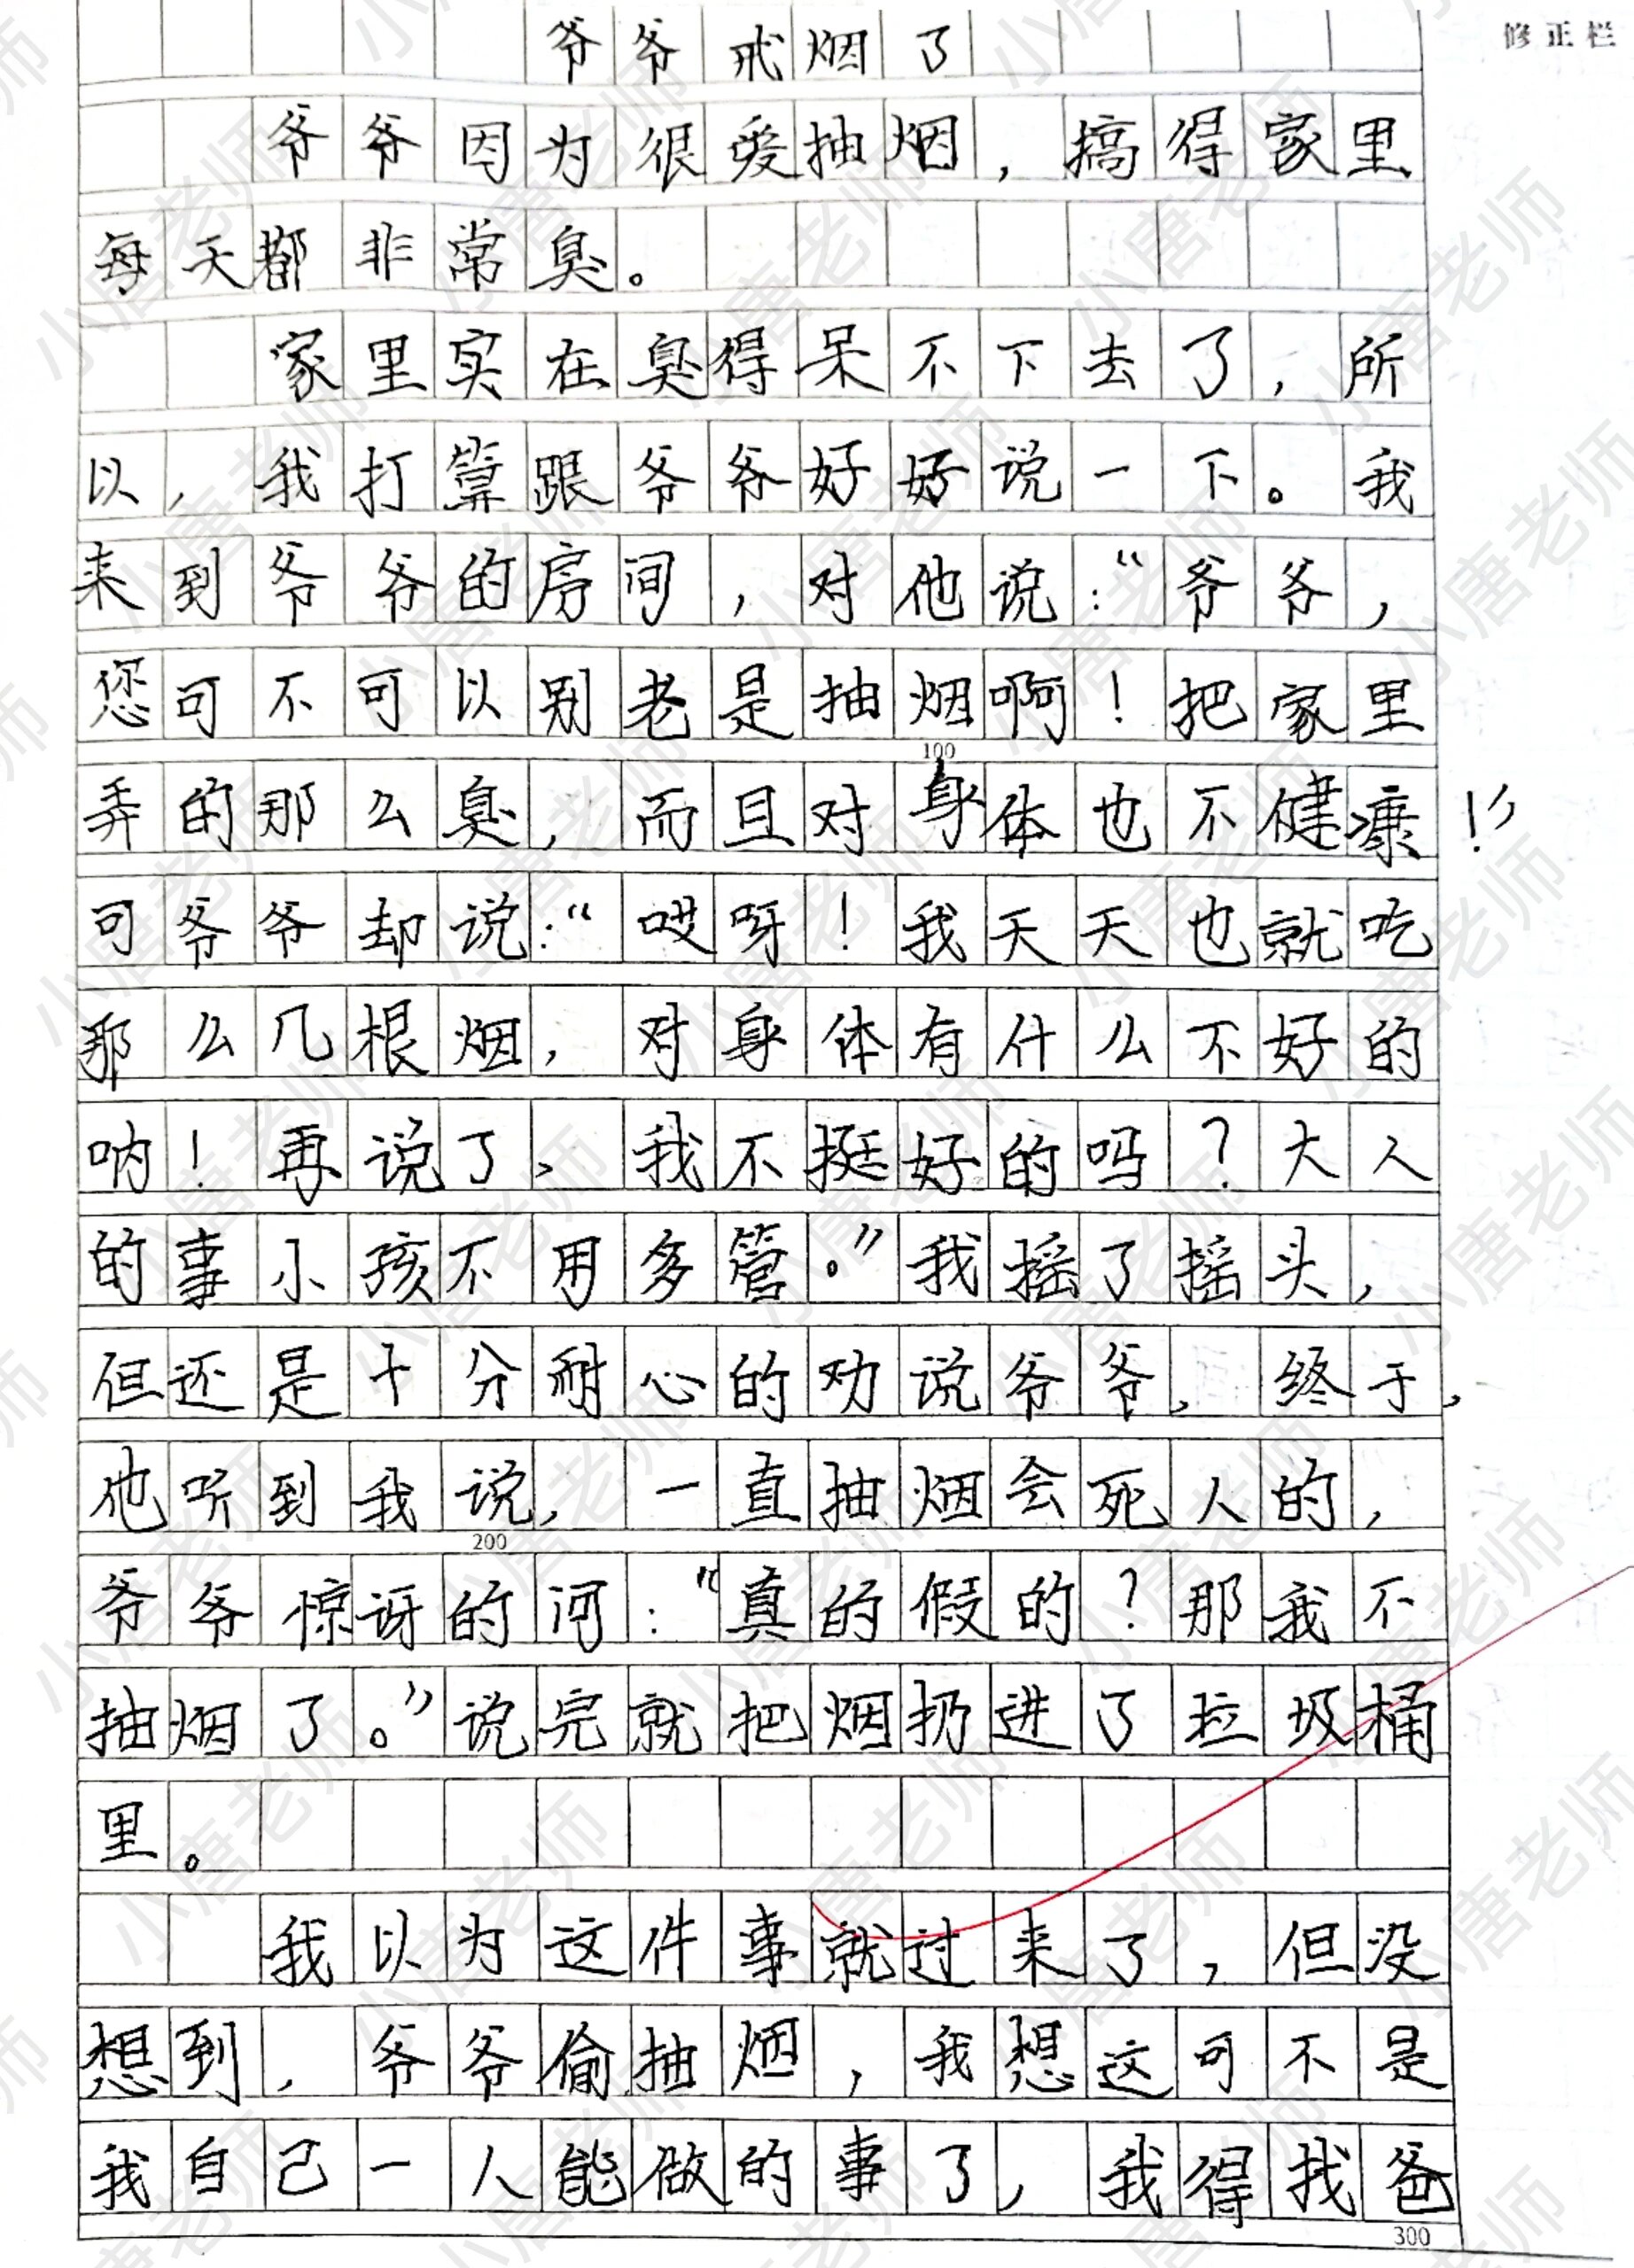 修正栏
爷爷戒烟了
爷爷因为很爱抽烟，搞得家里
每天都非常臭。
家里实在臭得呆不下去了，所
以，我打算跟爷爷好好说一下。我
来到爷爷的房间，对他说：“爷爷，
您可不可以别老是抽烟啊！把家里
100
弄的那么臭，而且对身体也不健康！”
可爷爷却说：“哎呀！我天天也就吃
那么几根烟，对身体有什么不好的
呐！再说了，我不挺好的吗？大人
的事小孩不用多管。”我摇了摇头，
但还是十分耐心的劝说爷爷，终于，
他听到我说，一直抽烟会死人的，
200
爷爷惊讶的问：“真的假的？那我不
抽烟了。”说完就把烟扔进了垃圾桶
里。
我以为这件事就过来了，但没
想到，爷爷偷抽烟，我想这可不是
我自己一人能做的事了，我得找爸
300
小唐老师